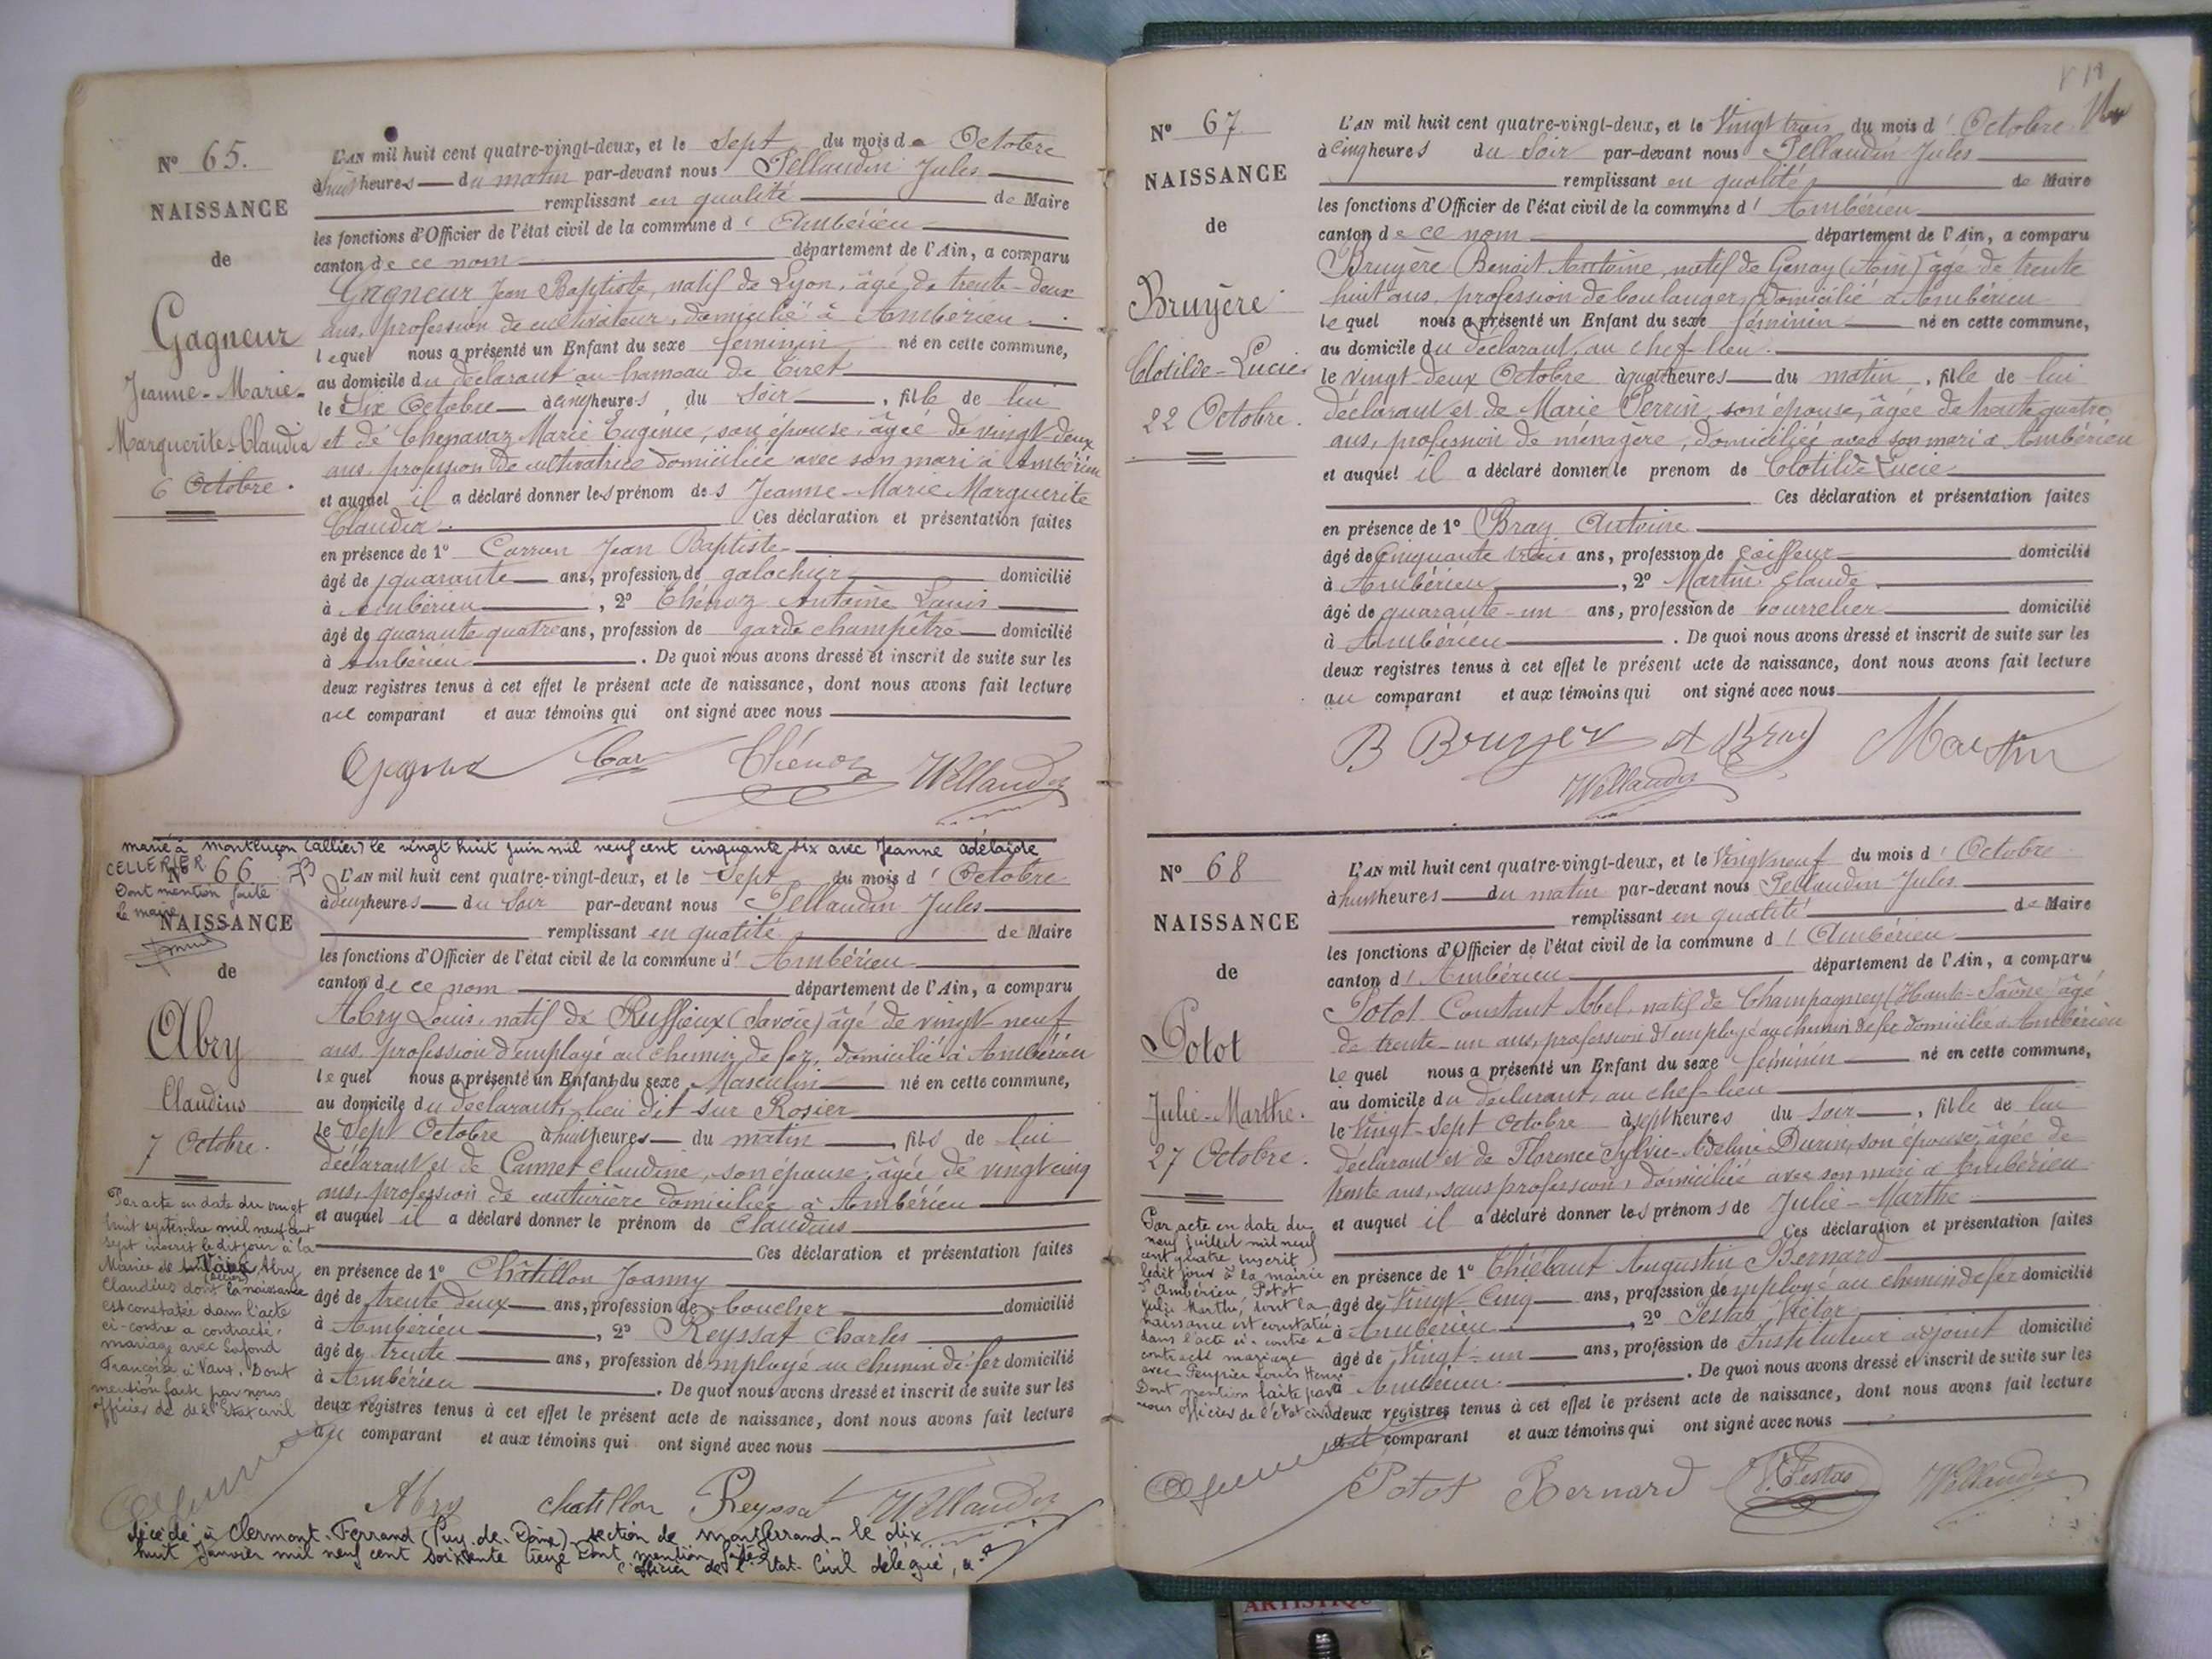 Nº 65.
NAISSANCE
de
Gagneur
Jeanne-Marie-
Marguerite-Claudia
6 Octobre.
L'AN mil huit cent quatre-vingt-deux, et le Sept du mois de Octobre
à huit heures du matin par-devant nous Pellaudin Jules
remplissant en qualité de Maire
les fonctions d'Officier de l'état civil de la commune d' Ambérieu
canton de ce nom département de l'Ain, a comparu
Gagneur Jean Baptiste, natif de Lyon, âgé de trente-deux
ans, profession de cultivateur, domicilié à Ambérieu
lequel nous a présenté un Enfant du sexe féminin né en cette commune,
au domicile du déclarant au hameau de Tiret
le Six Octobre à cinq heures du soir, fille de lui
et de Chenavaz Marie Eugénie, son épouse, âgée de vingt-deux
ans, profession de cultivatrice domiciliée avec son mari à Ambérieu
et auquel il a déclaré donner les prénom des Jeanne-Marie Marguerite
Claudia. Ces déclaration et présentation faites
en présence de 1º Carron Jean Baptiste
âgé de quarante ans, profession de galochier domicilié
à Ambérieu, 2º Thénoz Antoine Louis
âgé de quarante quatre ans, profession de garde champêtre domicilié
à Ambérieu. De quoi nous avons dressé et inscrit de suite sur les
deux registres tenus à cet effet le présent acte de naissance, dont nous avons fait lecture
au comparant et aux témoins qui ont signé avec nous
Car Thénoz
marié à Montluçon (allier) le vingt huit juin mil neuf cent cinquante six avec Jeanne adélaïde
CELLERIER
Dont mention faite
le maire
Nº 66
NAISSANCE
de
Abry
Claudius
7 Octobre.
L'AN mil huit cent quatre-vingt-deux, et le Sept du mois d' Octobre
à deux heures du soir par-devant nous Pellaudin Jules
remplissant en qualité de Maire
les fonctions d'Officier de l'état civil de la commune d' Ambérieu
canton de ce nom département de l'Ain, a comparu
Abry Louis, natif de Ruffieux (Savoie) âgé de vingt-neuf
ans, profession d'employé au chemin de fer, domicilié à Ambérieu
lequel nous a présenté un Enfant du sexe Masculin né en cette commune,
au domicile du déclarant, lieu dit sur Rosier
le Sept Octobre à huit heures du matin, fils de lui
déclarant et de Cannet Claudine, son épouse, âgée de vingt cinq
ans, profession de couturière domiciliée à Ambérieu
et auquel il a déclaré donner le prénom de Claudius
Ces déclaration et présentation faites
en présence de 1º Châtillon Joanny
âgé de trente deux ans, profession de boucher domicilié
à Ambérieu, 2º Reyssat Charles
âgé de trente ans, profession d'employé au chemin de fer domicilié
à Ambérieu. De quoi nous avons dressé et inscrit de suite sur les
deux registres tenus à cet effet le présent acte de naissance, dont nous avons fait lecture
au comparant et aux témoins qui ont signé avec nous
Par acte en date du vingt
huit septembre mil neuf cent
sept inscrit le dit jour à la
Mairie de Vaux Abry
(Allier)
Claudius dont la naissance
est constatée dans l'acte
ci-contre a contracté
mariage avec Lafond
Françoise à Vaux. Dont
mention faite par nous
officier de de l'état civil
Abry Chatillon Reyssat
décédé à Clermont-Ferrand (Puy-de-Dôme) section de montferrand - le dix
huit Janvier mil neuf cent soixante treize Dont mention faite
l'officier de l'Etat-Civil délégué,
Nº 67
NAISSANCE
de
Bruyère
Clotilde-Lucie
22 Octobre.
L'AN mil huit cent quatre-vingt-deux, et le Vingt trois du mois d' Octobre
à cinq heures du soir par-devant nous Pellaudin Jules
remplissant en qualité de Maire
les fonctions d'Officier de l'état civil de la commune d' Ambérieu
canton de ce nom département de l'Ain, a comparu
Bruyère Benoit Antoine, natif de Genay (Ain) âgé de trente
huit ans, profession de boulanger, domicilié à Ambérieu
lequel nous a présenté un Enfant du sexe féminin né en cette commune,
au domicile du déclarant, au chef-lieu.
le vingt deux Octobre à quatre heures du matin, fille de lui
déclarant et de Marie Perrin, son épouse, âgée de trente quatre
ans, profession de ménagère, domiciliée avec son mari à Ambérieu
et auquel il a déclaré donner le prenom de Clotilde Lucie
Ces déclaration et présentation faites
en présence de 1º Bray Antoine
âgé de cinquante trois ans, profession de coiffeur domicilié
à Ambérieu, 2º Martin Claude
âgé de quarante-un ans, profession de bourrelier domicilié
à Ambérieu. De quoi nous avons dressé et inscrit de suite sur les
deux registres tenus à cet effet le présent acte de naissance, dont nous avons fait lecture
au comparant et aux témoins qui ont signé avec nous
A Bray Martin
Nº 68
NAISSANCE
de
Potot
Julie-Marthe.
27 Octobre.
L'AN mil huit cent quatre-vingt-deux, et le Vingt neuf du mois d' Octobre
à huit heures du matin par-devant nous Pellaudin Jules
remplissant en qualité de Maire
les fonctions d'Officier de l'état civil de la commune d' Ambérieu
canton d' Ambérieu département de l'Ain, a comparu
Potot Constant Abel, natif de Champagney (Haute-Saône) âgé
de trente-un ans, profession d'employé au chemin de fer domicilié à Ambérieu
lequel nous a présenté un Enfant du sexe féminin né en cette commune,
au domicile du déclarant, au chef-lieu
le Vingt-sept Octobre à sept heures du soir, fille de lui
déclarant et de Florence Sylvie-Adeline Durin, son épouse, âgée de
trente ans, sans profession, domiciliée avec son mari à Ambérieu
et auquel il a déclaré donner les prénoms de Julie-Marthe
Ces déclaration et présentation faites
en présence de 1º Thiébaut Augustin Bernard
âgé de Vingt-Cinq ans, profession de employé au chemin de fer domicilié
à Ambérieu, 2º Festas Victor
âgé de Vingt-un ans, profession de Instituteur adjoint domicilié
à Ambérieu. De quoi nous avons dressé et inscrit de suite sur les
deux registres tenus à cet effet le présent acte de naissance, dont nous avons fait lecture
au comparant et aux témoins qui ont signé avec nous
Par acte en date du
neuf juillet mil neuf
cent quatre inscrit
ledit jour à la mairie
d'Ambérieu, Potot
Julie Marthe, dont la
naissance est constatée
dans l'acte ci-contre a
contracté mariage
avec Louis Henri
Dont mention faite par
nous officier de l'état civil
Potot Bernard V. Festas
ARTISTIQUE